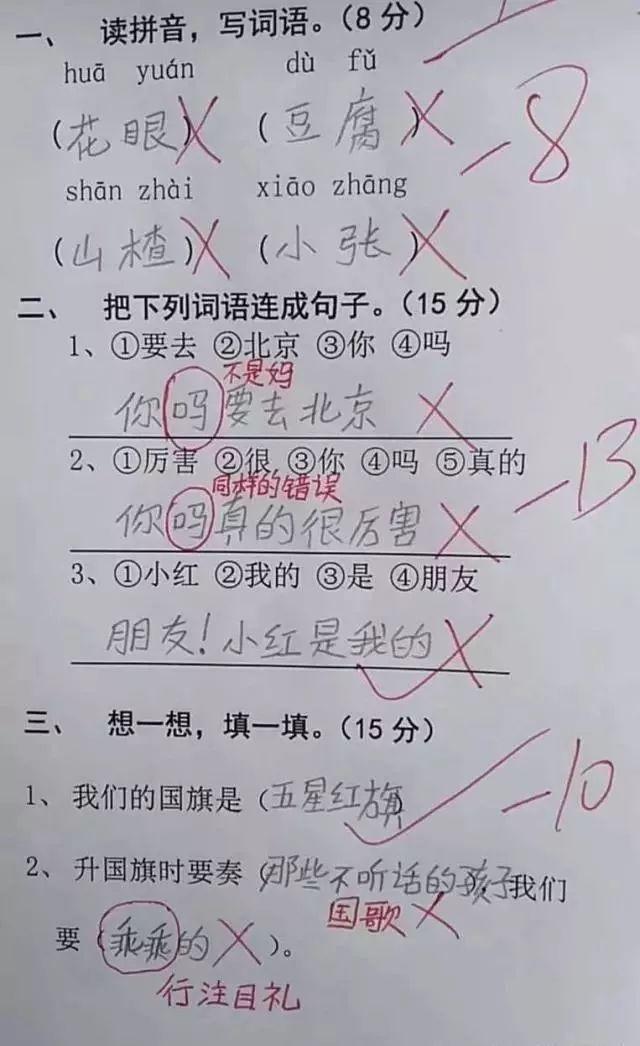 一、 读拼音，写词语。（8 分）
huā yuán dù fǔ
（花眼）（豆腐）
-8
shān zhài xiāo zhāng
（山楂）（小张）
二、 把下列词语连成句子。（15 分）
1、①要去 ②北京 ③你 ④吗
不是妈
你吗要去北京
2、①厉害 ②很 ③你 ④吗 ⑤真的
同样的错误
-13
你吗真的很厉害
3、①小红 ②我的 ③是 ④朋友
朋友！小红是我的
三、 想一想，填一填。（15 分）
1、我们的国旗是（五星红旗）
-10
2、升国旗时要奏（那些不听话的孩子），我们
国歌
要（乖乖的）。
行注目礼